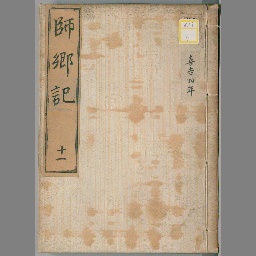 師郷記
十一
嘉吉四年